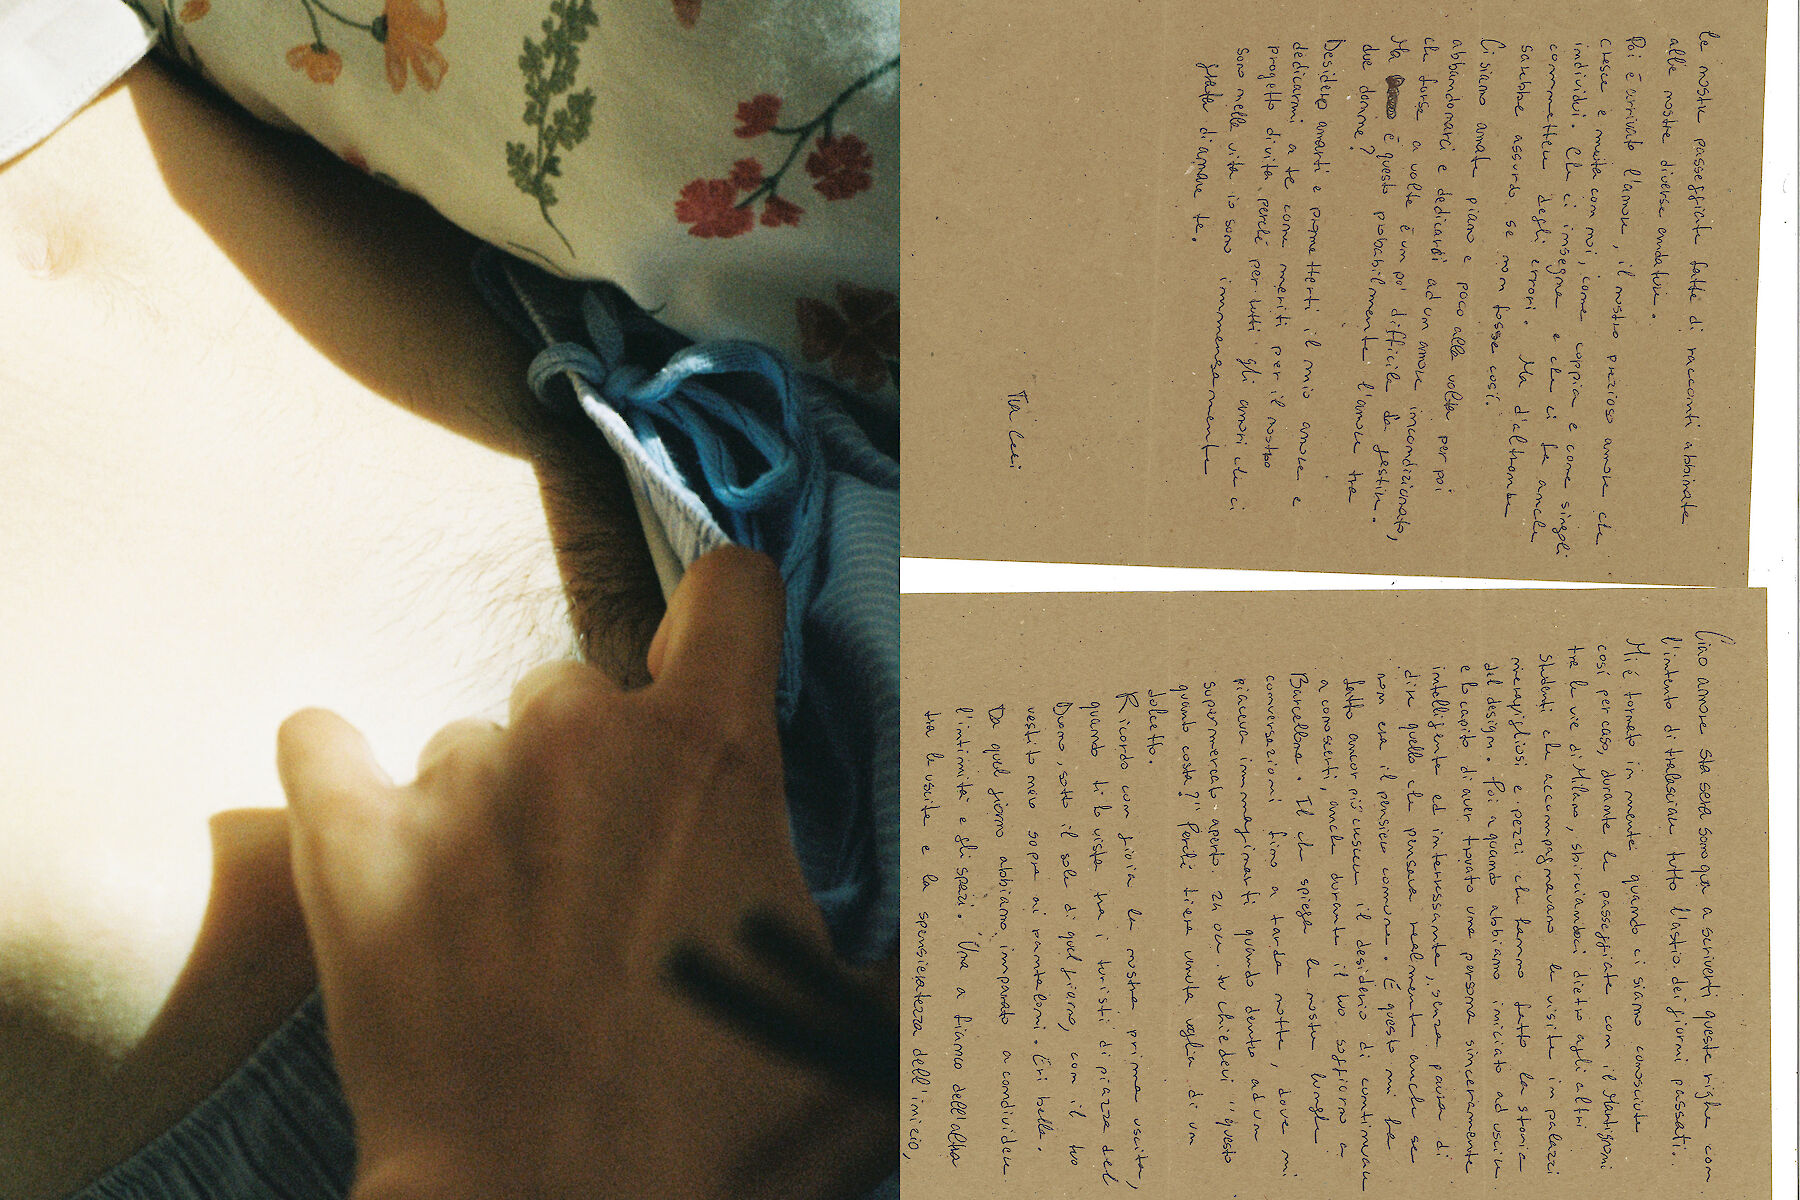 Ciao amore sta sera sono qui a scriverti queste righe con
l'intento di tralasciare tutto l'astio dei giorni passati.
Mi è tornato in mente quando ci siamo conosciute
così per caso, durante le passeggiate con il Mantignoni
tra le vie di Milano, sbirciandoci dietro agli altri
studenti che accompagnavano le visite in palazzi
meravigliosi e pezzi che hanno fatto la storia
del design. Poi a quando abbiamo iniziato ad uscire
e lo capito di aver trovato una persona sinceramente
intelligente ed interessante, senza paura di
dire quello che pensava realmente anche se
non era il pensiero comune. È questo mi ha
fatto ancor più crescere il desiderio di continuare
a conoscerti, anche durante il tuo soggiorno a
Barcellona. Il che spiega le nostre lunghe
conversazioni fino a tarda notte, dove mi
piaceva immaginarti quando dentro ad un
supermercato aperto 24 ore tu chiedevi "questo
quanto costa?" Perchè ti era venuta voglia di un
dolcetto.
Ricordo con gioia la nostra prima uscita,
quando ti ho vista tra i turisti di piazza del
Duomo, sotto il sole di quel giorno, con il tuo
vestito nero sopra ai pantaloni. Eri bella.
Da quel giorno abbiamo imparato a condividere
l'intimità e gli spazi. Una a fianco dell'altra
tra le uscite e la spensieratezza dell'inizio,
le nostre passeggiate fatte di racconti abbinate
alle nostre diverse andature.
Poi è arrivato l'amore, il nostro prezioso amore che
cresce e muta con noi, come coppia e come singoli
individui. Che ci insegna e che ci fa anche
commettere degli errori. Ma d'altronde
sarebbe assurdo se non fosse così.
Ci siamo amate piano e poco alla volta per poi
abbandonarci e dedicarci ad un amore incondizionato,
che forse a volte è un po' difficile da gestire.
Ma è questo probabilmente l'amore tra
due donne?
Desidero amarti e prometterti il mio amore e
dedicarmi a te come meriti per il nostro
progetto di vita, perchè per tutti gli amori che ci
sono nella vita io sono immensamente
grata di amare te.
Tua Ceci